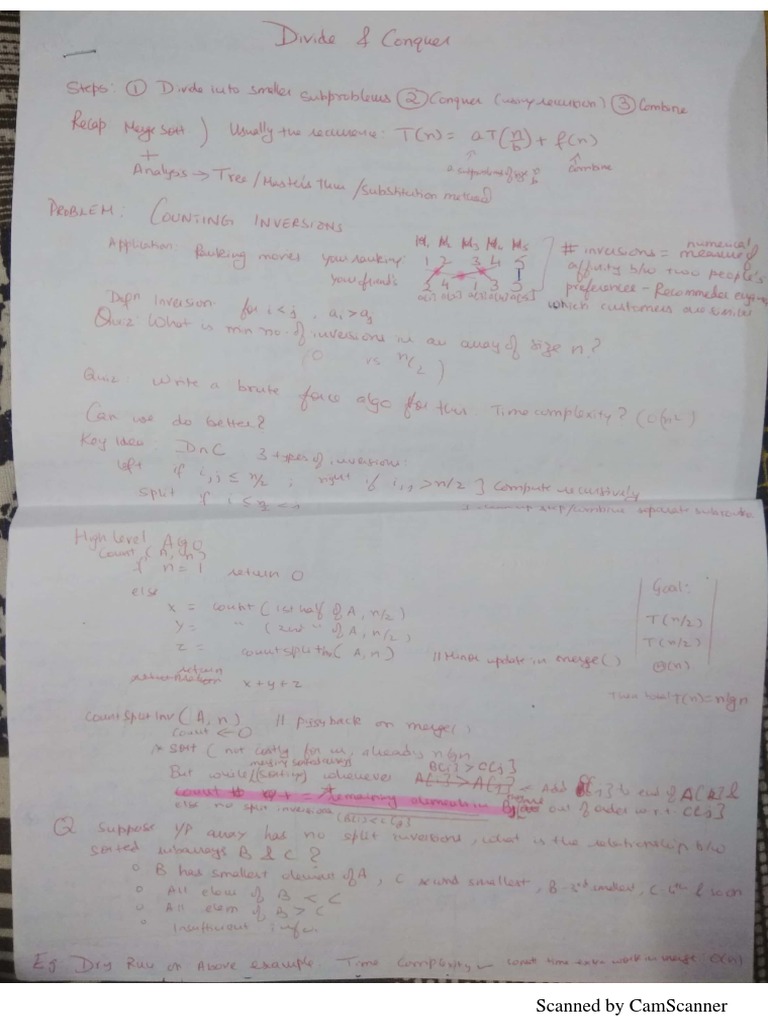 Divide & Conquer
Steps: ① Divide into smaller subproblems ② Conquer (using recursion) ③ Combine
Recap Merge Sort ) Usually the recurrence: T(n) = aT(n/b) + f(n)
+ combine
Analysis → Tree / Master's Thm / Substitution method
PROBLEM: COUNTING INVERSIONS
M1 M2 M3 M4 M5
Application: Ranking movies your ranking: 1 2 3 4 5
your friend's 2 4 1 3 5
# inversions = numerical
measured
affinity b/w two people's
preferences - Recommender
which customers are similar
Defn Inversion for i < j, ai > aj
Quiz: What is min no. of inversions in an array of size n?
(0 vs n/2)
Quiz: Write a brute force algo for this Time complexity?
Can we do better?
Key Idea: DnC 3 types of inversions:
left if i,j ≤ n/2 ; right if i,j > n/2 ] Compute recursively
Split if i ≤ n/2 <
step/combine separate subroutine
High level Algo
Count
if n = 1 return 0
else
x = count (1st half of A, n/2)
y = " (2nd " of A, n/2)
z = (A, n) // Minor update in merge()
return x+y+z
Goal:
T(n/2)
T(n/2)
Θ(n)
Then total T(n) = nlgn
CountSplitInv (A, n) // piggyback on merge:
count ← 0
* Sort ( not costly for us, already nlgn
merging sorted arrays B[i] > C[j]
But while whenever A[i] > A[j] ← Add to end of A[k] &
count # = remaining elements in out of order w.r.t. C[j]
else no split inversions (B[i] < C[j])
Q Suppose i/p array has no split inversions, what is the relationship b/w
sorted subarrays B & C?
° B has smallest element of A, C second smallest, B 3rd smallest, C 4th & so on
° All elem of B < C
° All elem of B > C
° Insufficient info.
Eg Dry Run on Above example Time Complexity ← const time extra work in merge O(n)
Scanned by CamScanner